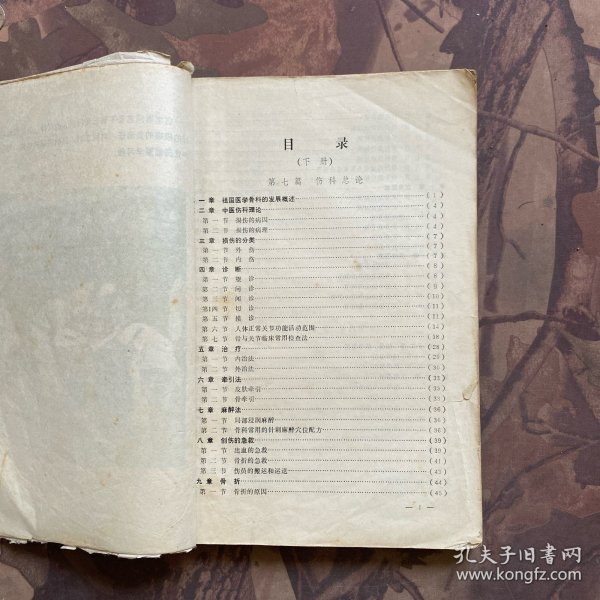 目 录
(下 册)
第七篇 伤科总论
一章 祖国医学骨科的发展概述 (1)
二章 中医伤科理论 (4)
第一节 损伤的病因 (4)
第二节 损伤的病理 (4)
三章 损伤的分类 (7)
第一节 外伤 (7)
第二节 内伤 (7)
四章 诊断 (8)
第一节 望诊 (8)
第二节 问诊 (9)
第三节 闻诊 (10)
第四节 切诊 (11)
第五节 摸诊 (11)
第六节 人体正常关节功能活动范围 (14)
第七节 骨与关节临床常用检查法 (18)
五章 治疗 (28)
第一节 内治法
第二节 外治法
六章 牵引法 (33)
第一节 皮肤牵引 (33)
第二节 骨牵引
七章 麻醉法 (36)
第一节 局部浸润麻醉 (36)
第二节 骨科常用的针刺麻醉穴位配方 (36)
八章 创伤的急救 (39)
第一节 出血的急救 (39)
第二节 骨折的急救 (41)
第三节 伤员的搬运和运送 (43)
九章 骨折 (44)
第一节 骨折的原因 (45)
— 1 —
孔夫子旧书网
www.kongfz.com